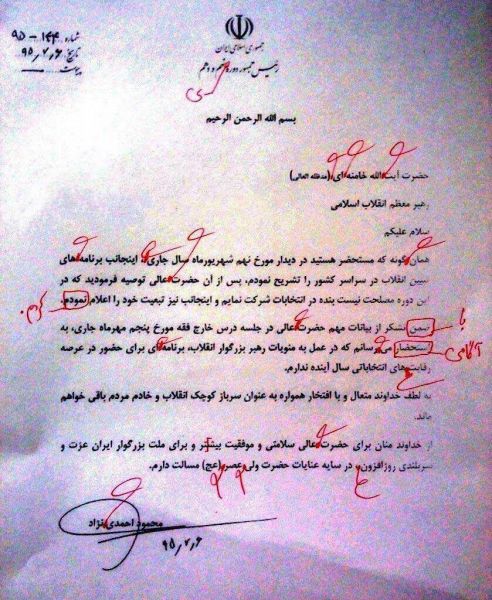 جمهوری اسلامی ایران
رئیس جمهور دوره نهم و دهم
شماره: ۱۴۴ - ۹۵
تاریخ: ۹۵٫۷٫۶
پیوست:
ی
بسم الله الرحمن الرحیم
حضرت آیت‌الله خامنه‌ای (مدظله العالی)
رهبر معظم انقلاب اسلامی
سلام علیکم
همان‌گونه که مستحضر هستید در دیدار مورخ نهم شهریورماه سال جاری، اینجانب برنامه‌های
تبیین انقلاب در سراسر کشور را تشریح نمودم، پس از آن حضرت‌عالی توصیه فرمودید که در
این دوره مصلحت نیست بنده در انتخابات شرکت نمایم و اینجانب نیز تبعیت خود را اعلام نمودم.
کردم
ضمن تشکر از بیانات مهم حضرت‌عالی در جلسه درس خارج فقه مورخ پنجم مهرماه جاری، به
با
استحضار می‌رسانم که در عمل به منویات رهبر بزرگوار انقلاب، برنامه‌ای برای حضور در عرصه
آگاهی
رقابت‌های انتخاباتی سال آینده ندارم.
به لطف خداوند متعال و با افتخار همواره به عنوان سرباز کوچک انقلاب و خادم مردم باقی خواهم
ماند.
از خداوند منان برای حضرت‌عالی سلامتی و موفقیت بیشتر و برای ملت بزرگوار ایران عزت و
سربلندی روزافزون، در سایه عنایات حضرت ولی‌عصر (عج) مسالت دارم.
محمود احمدی‌نژاد
۹۵٫۷٫۶